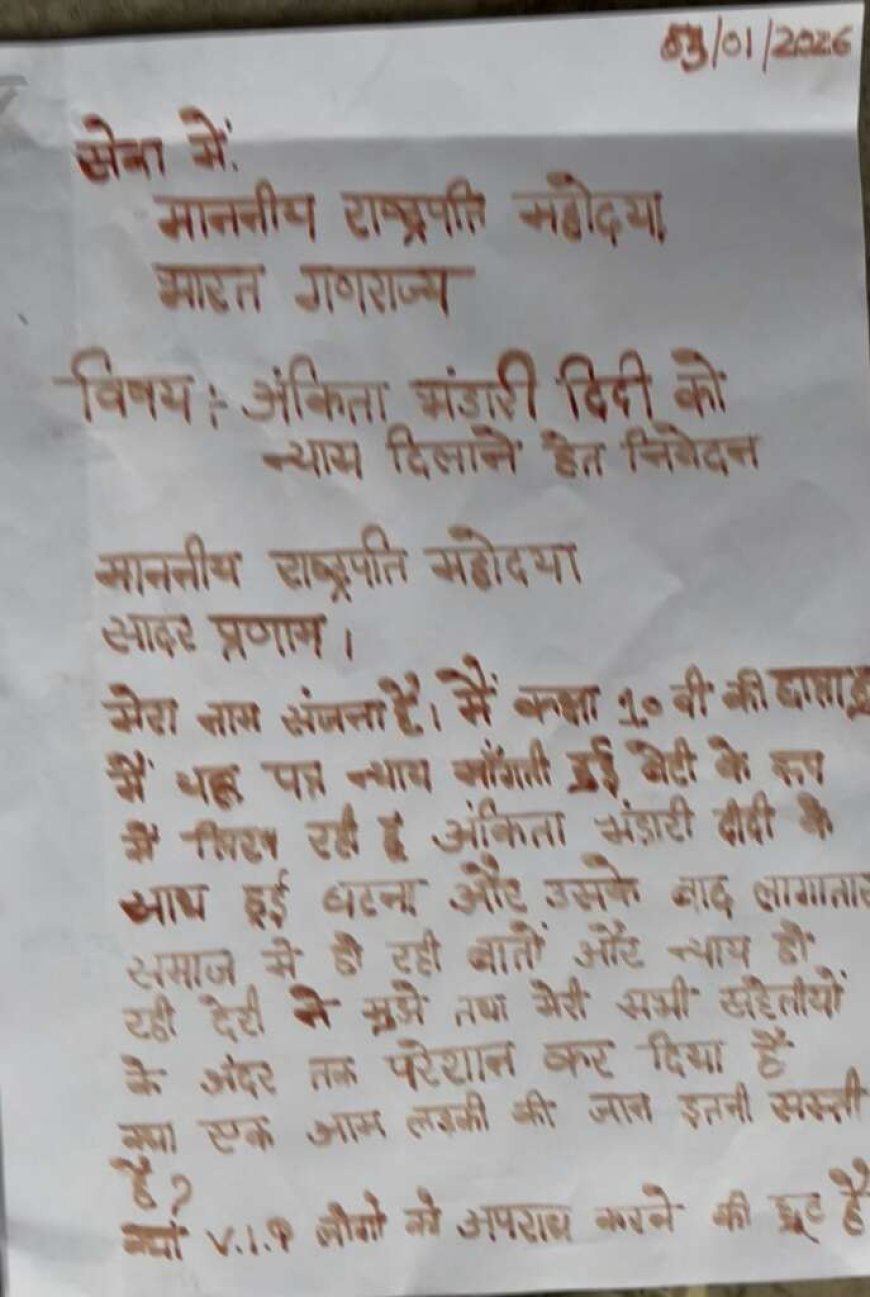 03/01/2026
सेवा में.
माननीय राष्ट्रपति महोदया,
भारत गणराज्य
विषय :- अंकिता भंडारी दिदी को
न्याय दिलाने हेत निवेदन
माननीय राष्ट्रपति महोदया
सादर प्रणाम।
मेरा नाम संजना है। मैं कक्षा 10 वी की छात्रा हू
मैं यह पत्र न्याय माँगती हुई बेटी के रूप
में लिख रही हूं अंकिता भंडारी दीदी के
साथ हुई घटना और उसके बाद लागातार
समाज मे हो रही बातों और न्याय हो
रही देरी ने मुझे तथा मेरी सभी सहेलीयों
के अंदर तक परेशान कर दिया हैं
क्या एक आम लडकी की जान इतनी सस्ती
हैं?
क्यों V.I.P लोगो को अपराध करने की छूट हैं